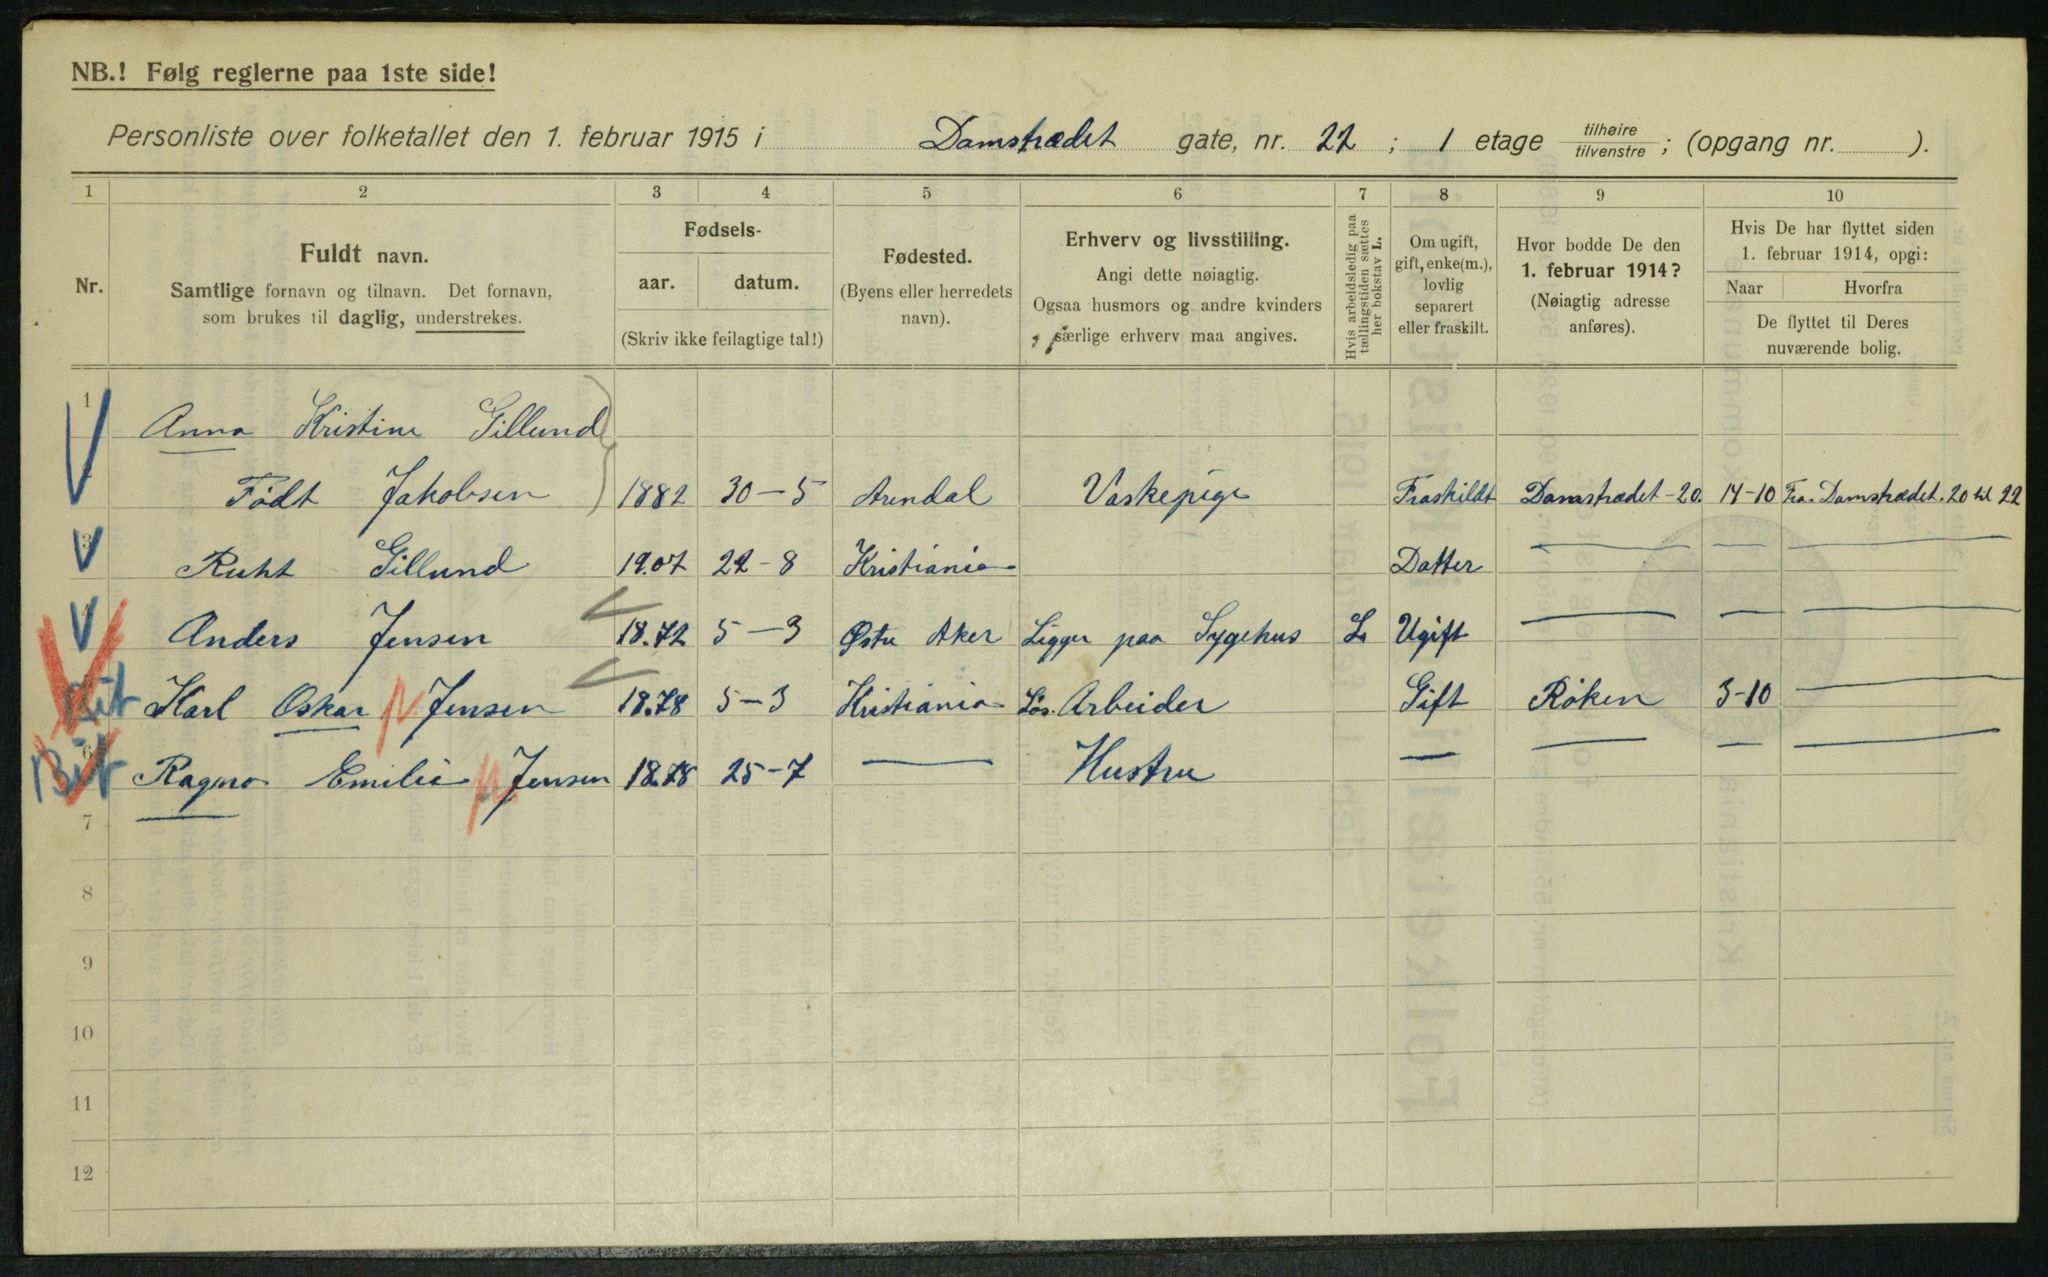 NB.! Følg reglerne paa 1ste side!
Personliste over folketallet den 1. februar 1915 i Damstrædet gate, nr. 22 ; 1 etage tilhøire tilvenstre ; (opgang nr. ).
1 2 3 4 5 6 7 8 9 10
Nr.
Fuldt navn.
Samtlige fornavn og tilnavn. Det fornavn,
som brukes til daglig, understrekes.
Fødsels-
aar. datum.
(Skriv ikke feilagtige tal!)
Fødested.
(Byens eller herredets
navn).
Erhverv og livsstilling.
Angi dette nøiagtig.
Ogsaa husmors og andre kvinders
særlige erhverv maa angives.
Hvis arbeidsledig paa
tællingstiden sættes
her bokstav L.
Om ugift,
gift, enke(m.),
lovlig
separert
eller fraskilt.
Hvor bodde De den
1. februar 1914?
(Nøiagtig adresse
anføres).
Hvis De har flyttet siden
1. februar 1914, opgi:
Naar Hvorfra
De flyttet til Deres
nuværende bolig.
1 Anna Kristine Gillund
Født Jakobsen 1882 30-5 Arendal Vaskepige Fraskildt Damstrædet-20. 14-10 Fra. Damstrædet. 20 til 22
3 Ruht Gillund 19.07 22-8 Kristiania Datter — — —
4 Anders Jensen 18.72 5-3 Østre Aker Ligger paa Sygehus L. Ugift — — —
5 Karl Oskar Jensen 18.78 5-3 Kristiania Løs. Arbeider Gift Røken 3-10 —
6 Ragna Emilie Jensen 18.78 25-7 — Hustru — — — —
7
8
9
10
11
12